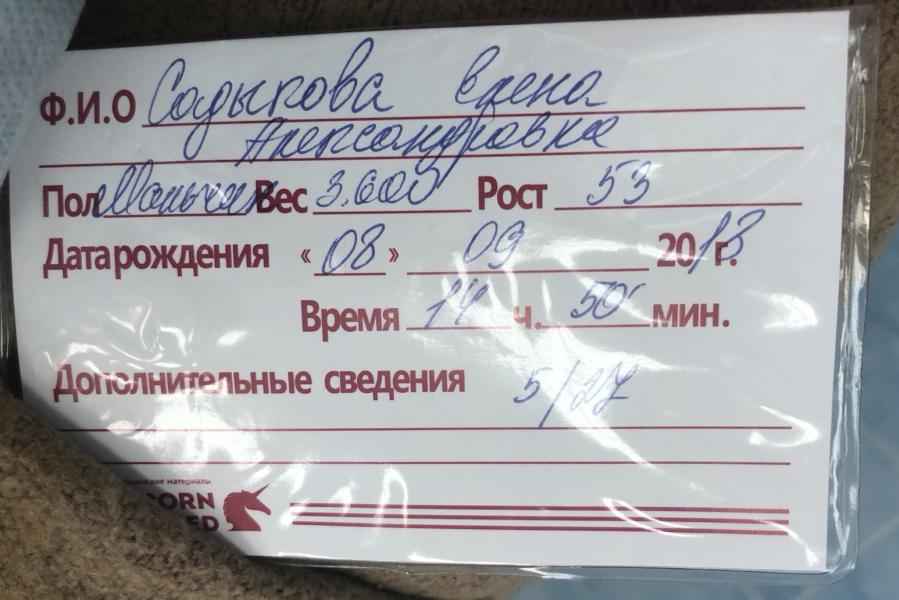 Ф.И.О Садыкова Елена
Александровна
Пол Мальчик Вес 3.600 Рост 53
Дата рождения «08» 09 2018 г.
Время 14 ч. 50 мин.
Дополнительные сведения 5/27
материалы
ORN
ED